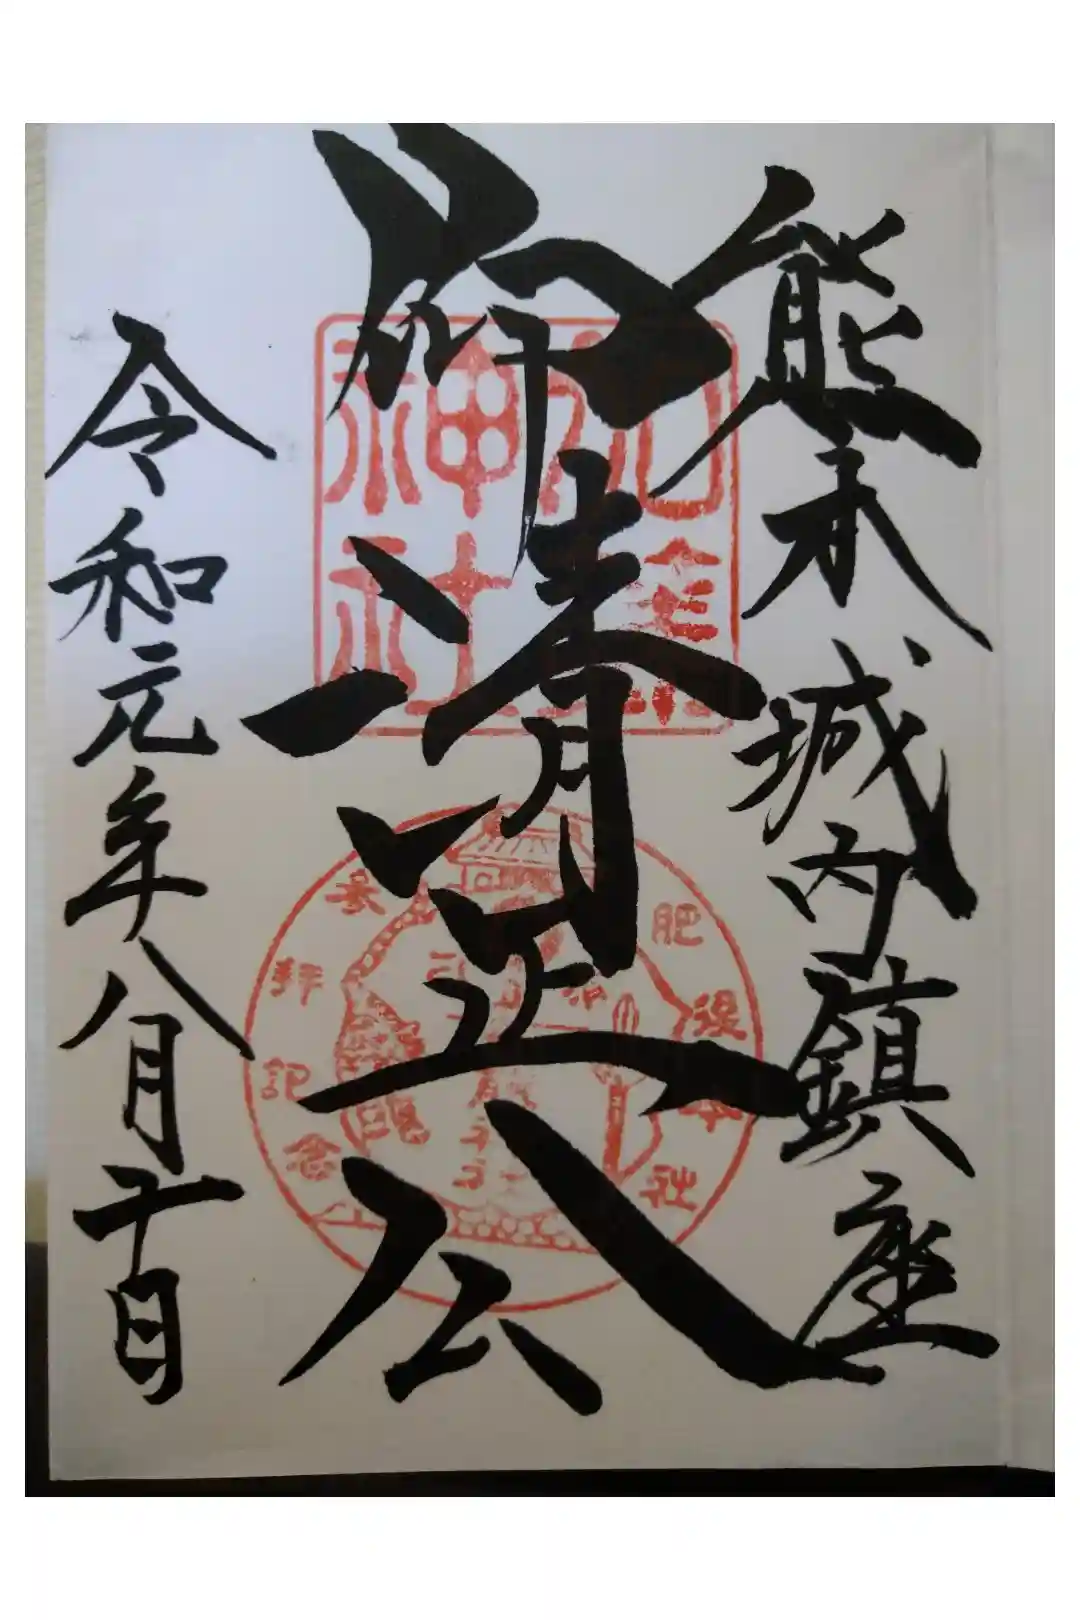 熊本城内鎮座
仰清正公
令和元年八月十日
加藤
神社
肥後本社
参拝記念